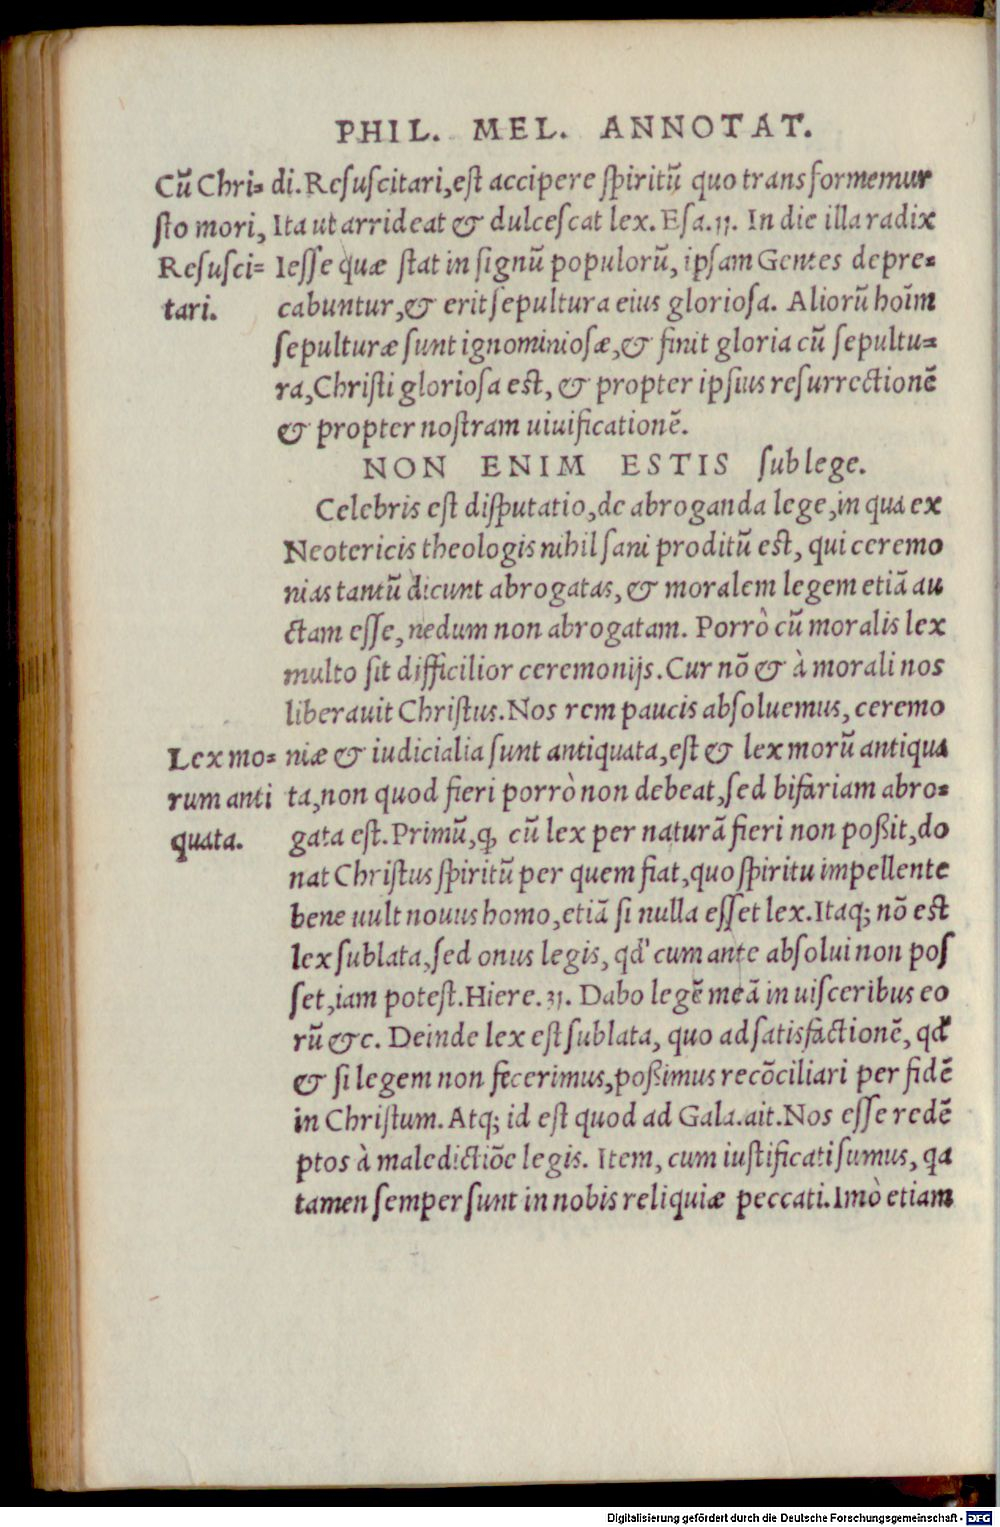 PHIL. MEL. ANNOTAT.
Cū Chri=
sto mori,
Resusci=
tari.
di. Resuscitari, est accipere spiritū quo transformemur
Ita ut arrideat & dulcescat lex. Esa. 11. In die illa radix
Iesse quæ stat in signū populorū, ipsam Gentes depre=
cabuntur, & erit sepultura eius gloriosa. Aliorū hoīm
sepulturæ sunt ignominiosæ, & finit gloria cū sepultu=
ra, Christi gloriosa est, & propter ipsius resurrectionē
& propter nostram uiuificationē.
NON ENIM ESTIS sub lege.
Celebris est disputatio, de abroganda lege, in qua ex
Neotericis theologis nihil sani proditū est, qui ceremo
nias tantū dicunt abrogatas, & moralem legem etiā au
ctam esse, nedum non abrogatam. Porrò cū moralis lex
multo sit difficilior ceremonijs. Cur nō & à morali nos
liberauit Christus. Nos rem paucis absoluemus, ceremo
Lex mo=
rum anti
quata.
niæ & iudicialia sunt antiquata, est & lex morū antiqua
ta, non quod fieri porrò non debeat, sed bifariam abro=
gata est. Primū, ꝙ cū lex per naturā fieri non poßit, do
nat Christus spiritū per quem fiat, quo spiritu impellente
bene uult nouus homo, etiā si nulla esset lex. Itaq; nō est
lex sublata, sed onus legis, qd' cum ante absolui non pos
set, iam potest. Hiere. 31. Dabo legē meā in uisceribus eo
rū &c. Deinde lex est sublata, quo ad satisfactionē, qd'
& si legem non fecerimus, poßimus recōciliari per fidē
in Christum. Atq; id est quod ad Gala. ait. Nos esse redē
ptos à maledictiōe legis. Item, cum iustificati sumus, qa
tamen semper sunt in nobis reliquiæ peccati. Imò etiam
Digitalisierung gefördert durch die Deutsche Forschungsgemeinschaft - DFG